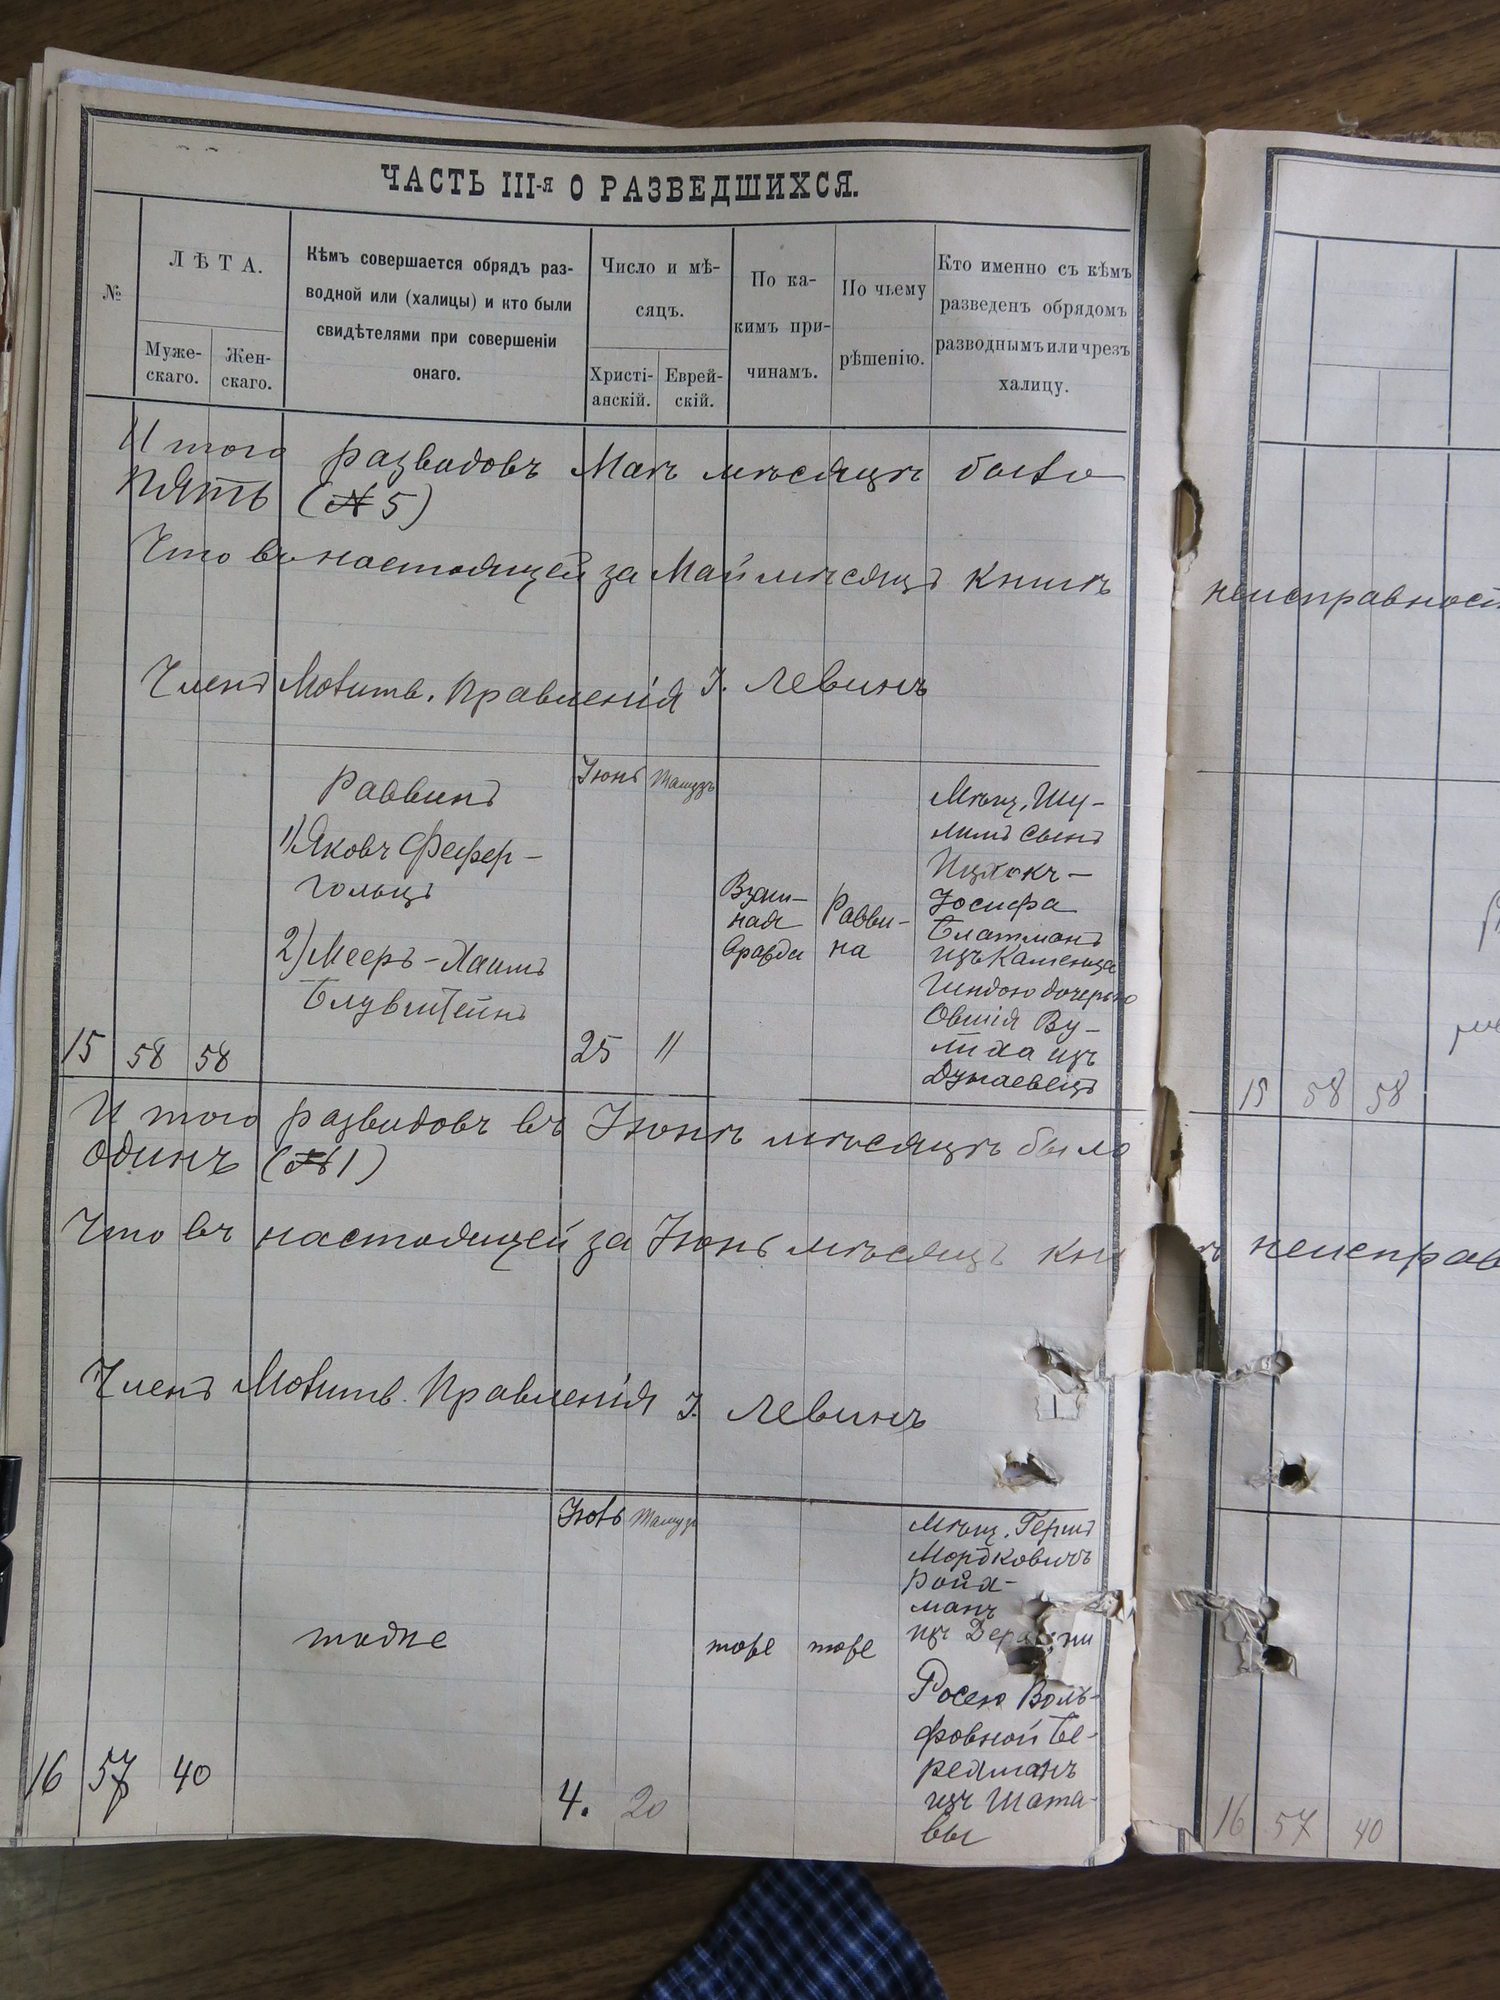 ЧАСТЬ III-я О РАЗВЕДШИХСЯ.
№
ЛѢТА.
Муже-
скаго.
Жен-
скаго.
Кѣмъ совершается обрядъ раз-
водной или (халицы) и кто были
свидѣтелями при совершеніи
онаго.
Число и мѣ-
сяцъ.
Христі-
анскій.
Еврей-
скій.
По ка-
кимъ при-
чинамъ.
По чьему
рѣшенію.
Кто именно съ кѣмъ
разведенъ обрядомъ
разводнымъ или чрезъ
халицу.
Итого разводовъ Маѣ мѣсяцѣ было
пять (№ 5)
Что въ настоящей за Май мѣсяцъ книгѣ неисправност
Членъ Молитв. Правленія І. Левинъ
Раввинъ
1) Яковъ Фефер-
гольцъ
2) Мееръ-Хаимъ
Блувштейнъ
Іюнь
Тамузъ
Взаи-
мная
вражда
Равви-
на
Мѣщ. Шу-
лимъ сынъ
Ицхокъ-
Іосифа
Блатманъ
изъ Каменца
Гиндою дочерью
Овшія Ву-
лиха изъ
Дунаевецъ
15 58 58 25 11
15 58 58
Итого разводовъ въ Іюнѣ мѣсяцѣ было
одинъ (№ 1)
Что въ настоящей за Іюнь мѣсяцъ кн ѣ неисправ
Членъ Молитв. Правленія І. Левинъ
Іюль
Тамузъ
тодне
тоже
тоже
Мѣщ. Герш
Мордковичъ
Ройх-
манъ
изъ
Росею Воль-
фовной Бе-
релманъ
изъ Шата-
вы
16 57 40 4. 20
16 57 40